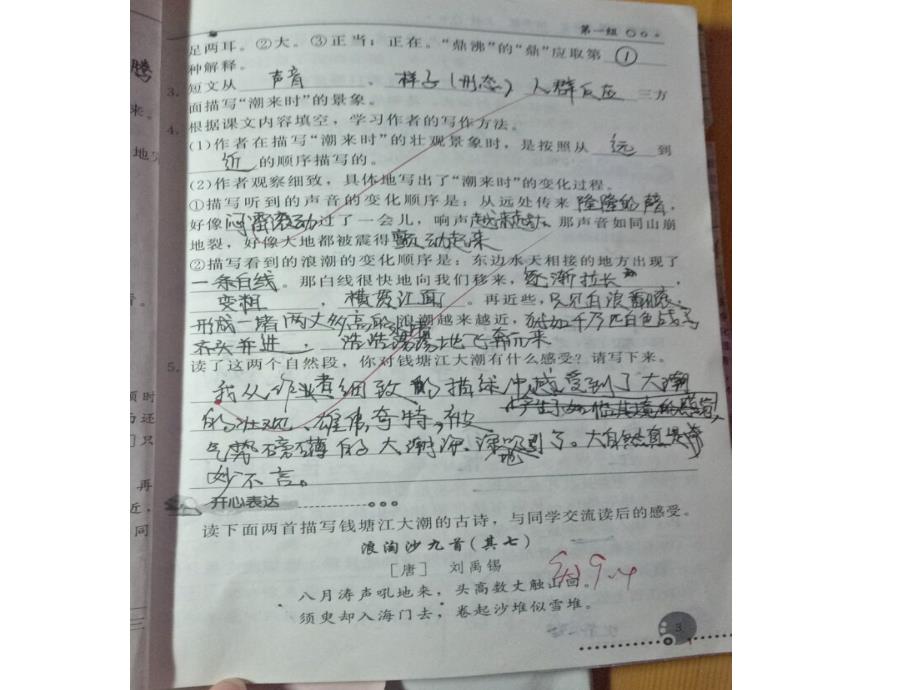 第一组
足两耳。②大。③正当；正在。“鼎沸”的“鼎”应取第 ①
种解释。
3. 短文从 声音 、 样子(形态) 人群反应 三方
面描写“潮来时”的景象。
4. 根据课文内容填空，学习作者的写作方法。
(1)作者在描写“潮来时”的壮观景象时，是按照从 远 到
近 的顺序描写的。
(2)作者观察细致，具体地写出了“潮来时”的变化过程。
①描写听到的声音的变化顺序是：从远处传来 隆隆的 声，
好像 闷雷滚动 过了一会儿，响声 越来越大。那声音如同山崩
地裂，好像大地都被震得 颤动起来
②描写看到的浪潮的变化顺序是：东边水天相接的地方出现了
一条白线。那白线很快地向我们移来， 逐渐拉长，
变粗 ， 横贯江面了 。再近些，只见白浪翻滚，
形成一堵两丈多高的 浪潮越来越近， 千万匹白色战马
齐头并进 ， 浩浩荡荡地飞奔而来
5. 读了这两个自然段，你对钱塘江大潮有什么感受？请写下来。
我从作者细致的描绘中感受到了大潮
的壮观、雄伟、奇特，被
气势磅礴的大潮深深
妙不言。
开心表达
读下面两首描写钱塘江大潮的古诗，与同学交流读后的感受。
浪淘沙九首(其七)
[唐] 刘禹锡
八月涛声吼地来，头高数丈触山回。
须臾却入海门去，卷起沙堆似雪堆。
3
腾
来。
地
顷时
历还
门只
再
近，
同